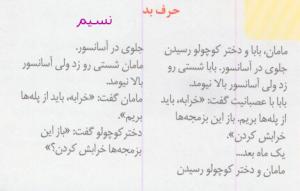 حرف بد
نسیم
مامان، بابا و دختر کوچولو رسیدن
جلوی در آسانسور. بابا شستی رو
زد ولی آسانسور بالا نیومد.
بابا با عصبانیت گفت: «خرابه، باید
از پله‌ها بریم. باز این بزمجه‌ها
خرابش کردن».
یک ماه بعد...
مامان و دختر کوچولو رسیدن
جلوی در آسانسور.
مامان شستی رو زد ولی آسانسور
بالا نیومد.
مامان گفت: «خرابه، باید از پله‌ها
بریم».
دختر کوچولو گفت: «باز این
بزمجه‌ها خرابش کردن؟»